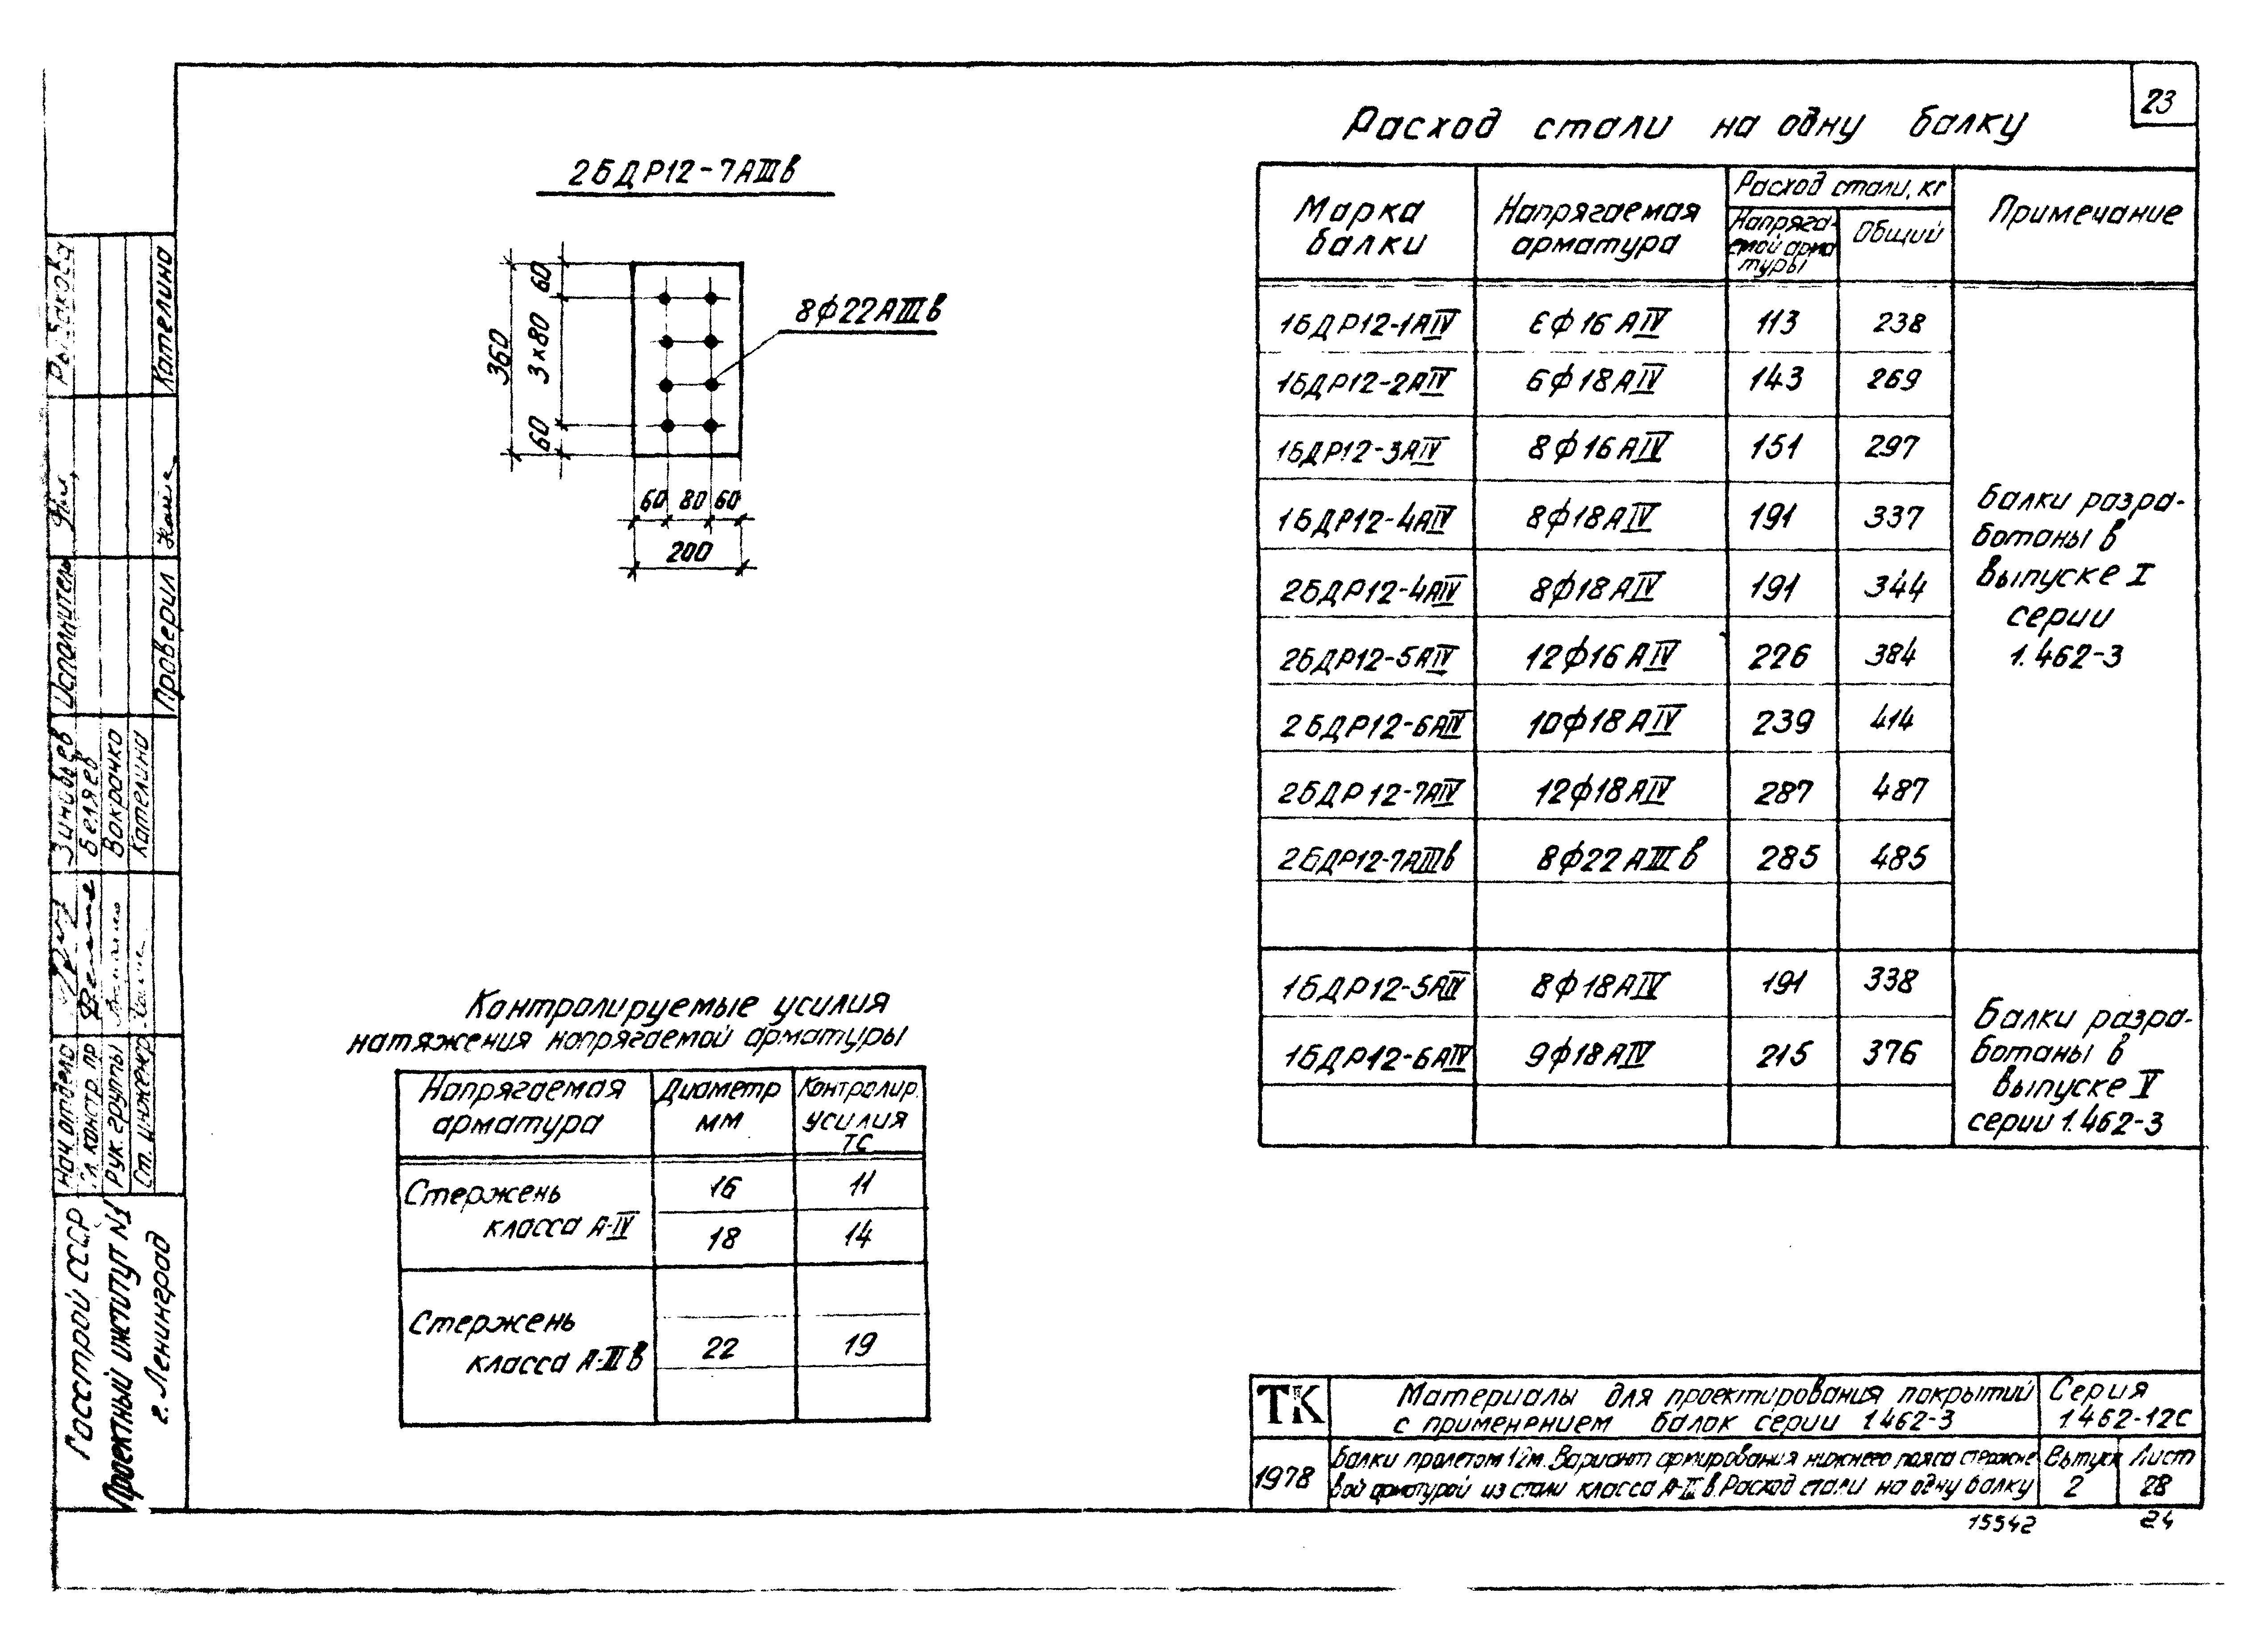 23
2БДР12-7АIIIв
60
3×80
360
60
8ф22АIIIв
60 80 60
200
Расход стали на одну балку
Марка балки | Напрягаемая арматура | Расход стали, кг | Примечание
Напрягаемой арматуры | Общий
1БДР12-1АIV 6ф16АIV 113 238
1БДР12-2АIV 6ф18АIV 143 269
1БДР12-3АIV 8ф16АIV 151 297
1БДР12-4АIV 8ф18АIV 191 337
2БДР12-4АIV 8ф18АIV 191 344
2БДР12-5АIV 12ф16АIV 226 384
2БДР12-6АIV 10ф18АIV 239 414
2БДР12-7АIV 12ф18АIV 287 487
2БДР12-7АIIIв 8ф22АIIIв 285 485
Балки разра-
ботаны в
выпуске I
серии
1.462-3
1БДР12-5АIV 8ф18АIV 191 338
1БДР12-6АIV 9ф18АIV 215 376
Балки разра-
ботаны в
выпуске V
серии 1.462-3
Контролируемые усилия
натяжения напрягаемой арматуры
Напрягаемая арматура | Диаметр мм | Контролир. усилия тс
Стержень
класса А-IV
16 11
18 14
Стержень
класса А-IIIв
22 19
ТК
1978
Материалы для проектирования покрытий
с применением балок серии 1.462-3
Серия
1.462-12С
Балки пролетом 12м. Вариант армирования нижнего пояса стержне
вой арматурой из стали класса А-IIIв. Расход стали на одну балку
Выпуск
2
Лист
28
15542 24
Госстрой СССР
Проектный институт №1
г. Ленинград
Нач. отдела Зиновьев Исполнитель Рыбакова
Гл. констр. пр Беляев
Рук. группы Вокрачко
Ст. инженер Кателина
Проверил Кателина